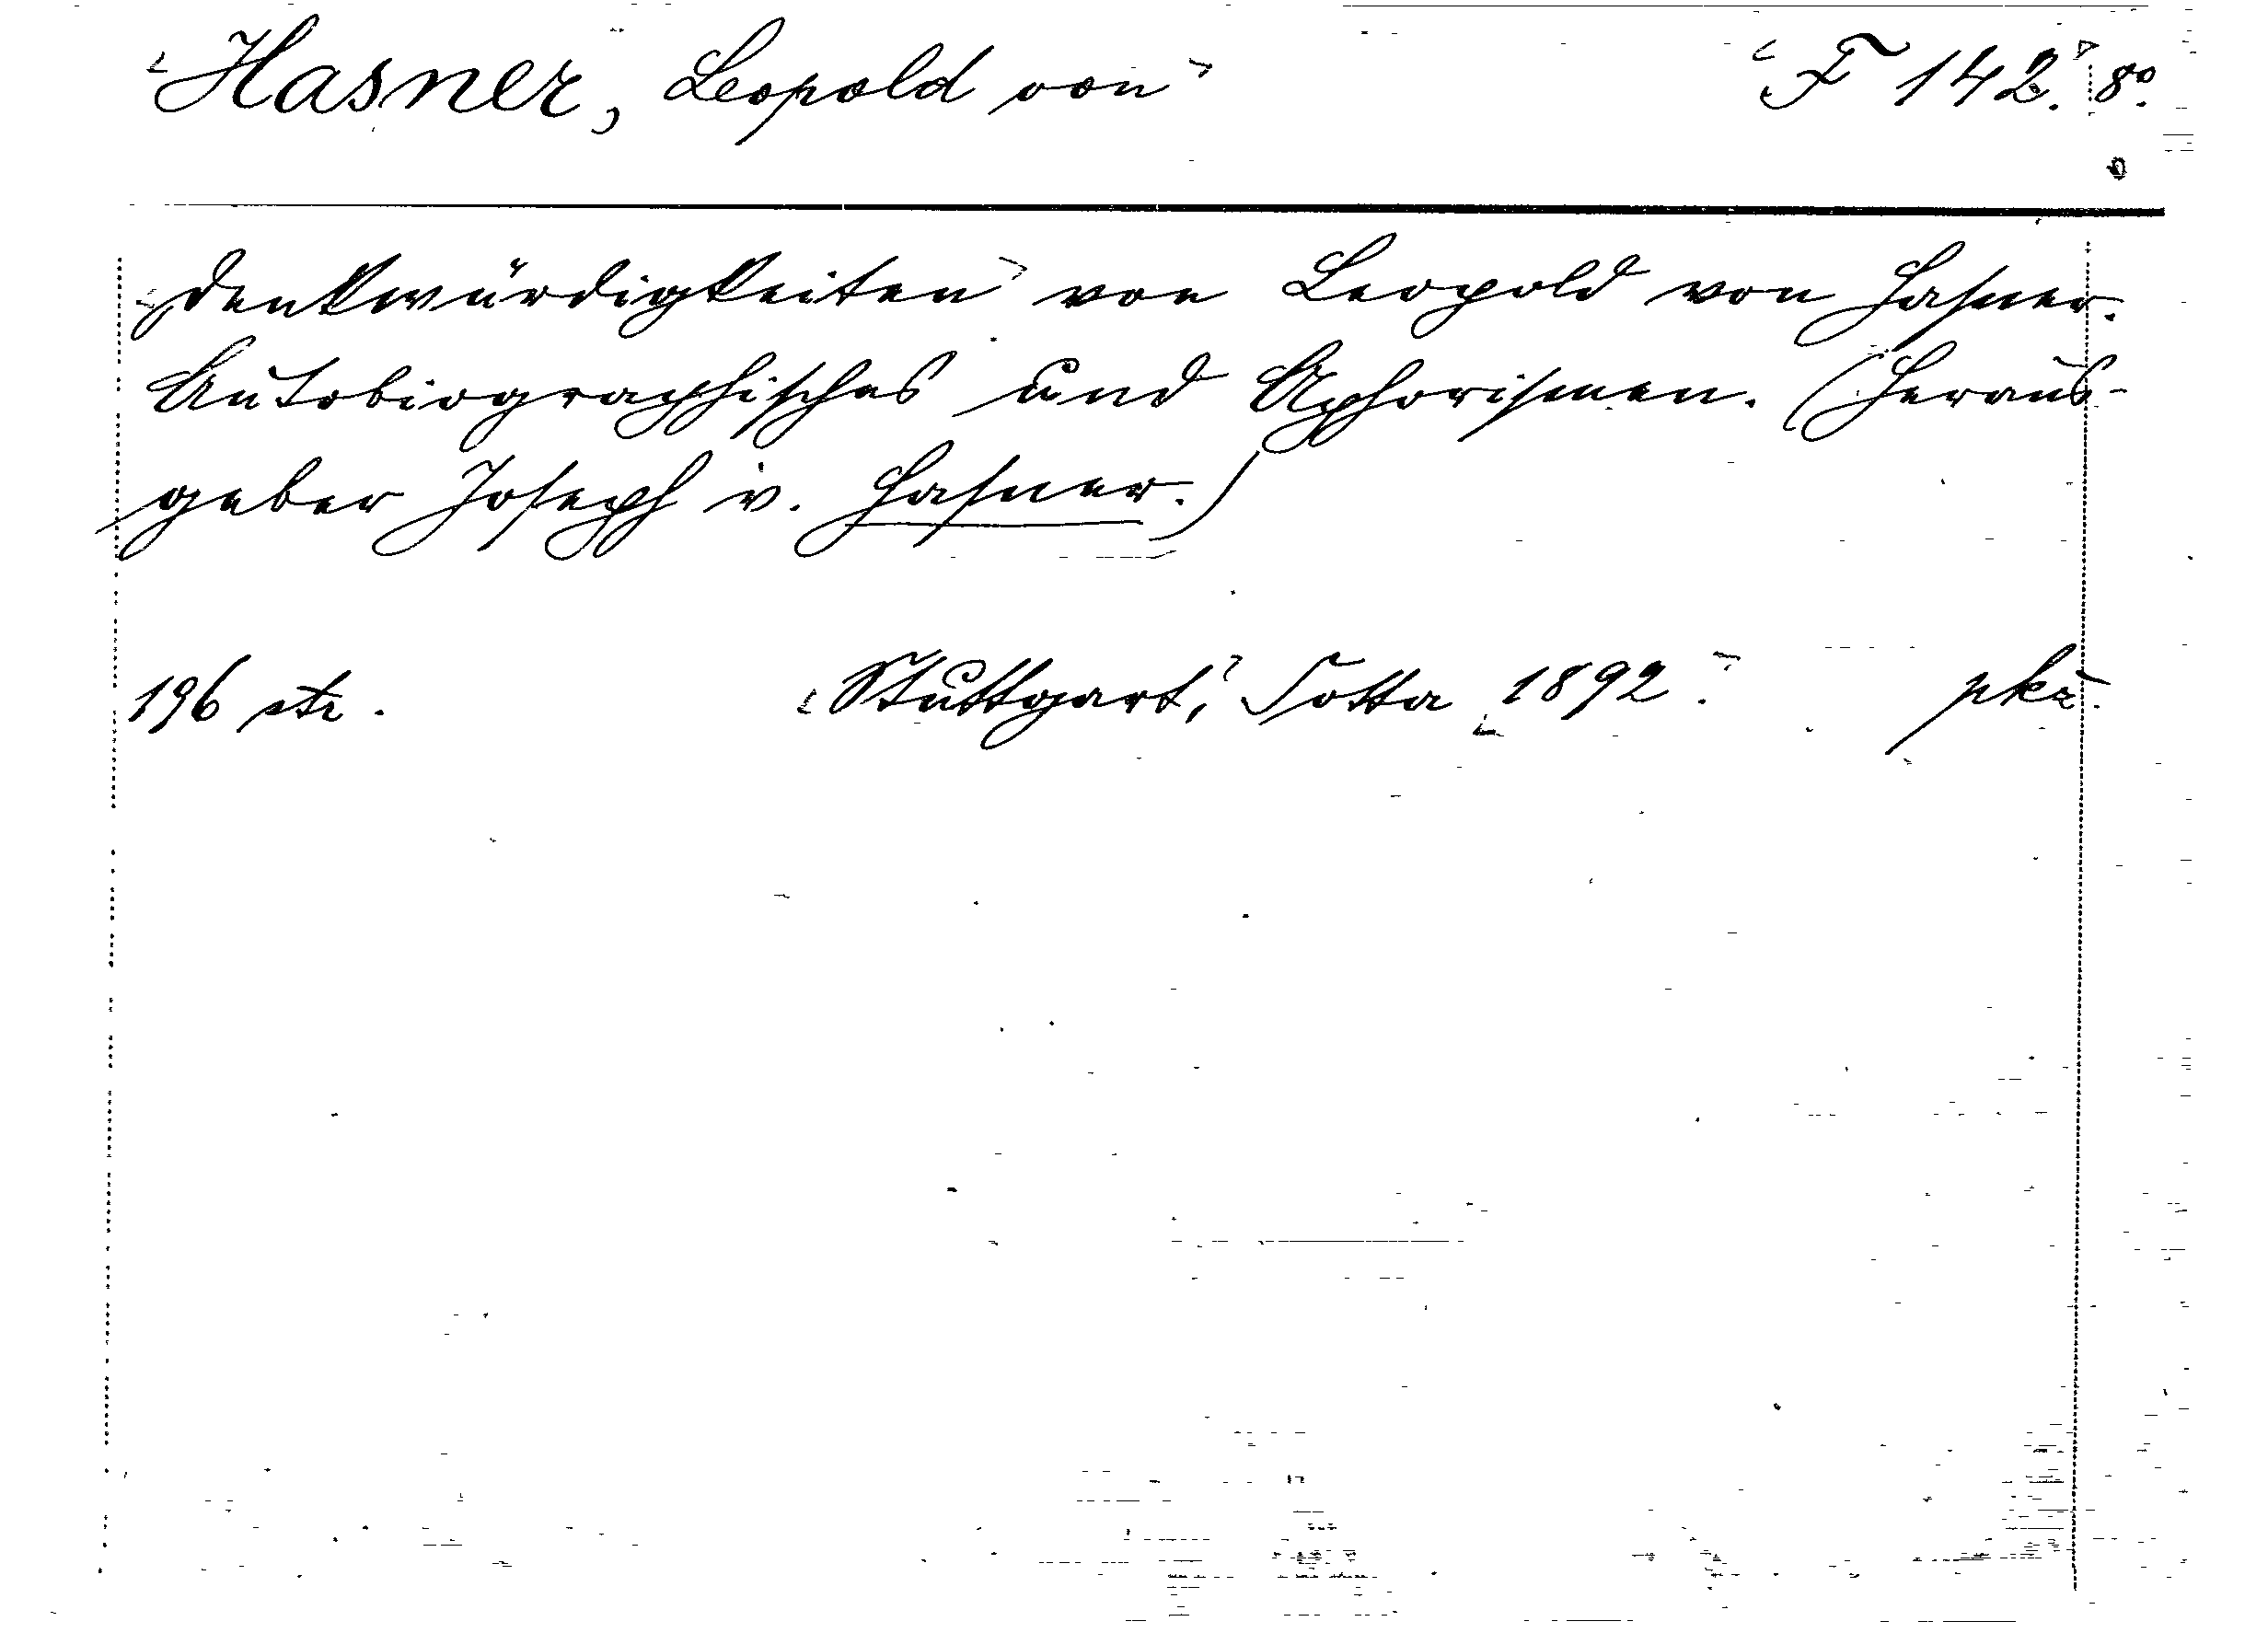 Hasner, Leopold von F 142. 8°.
Denkwürdigkeiten von Leopold von Hasner.
Autobiographisches und Aphorismen. (Heraus-
geber Joseph v. Hasner.)
196 str. Stuttgart, Cotta 1892. pkž.